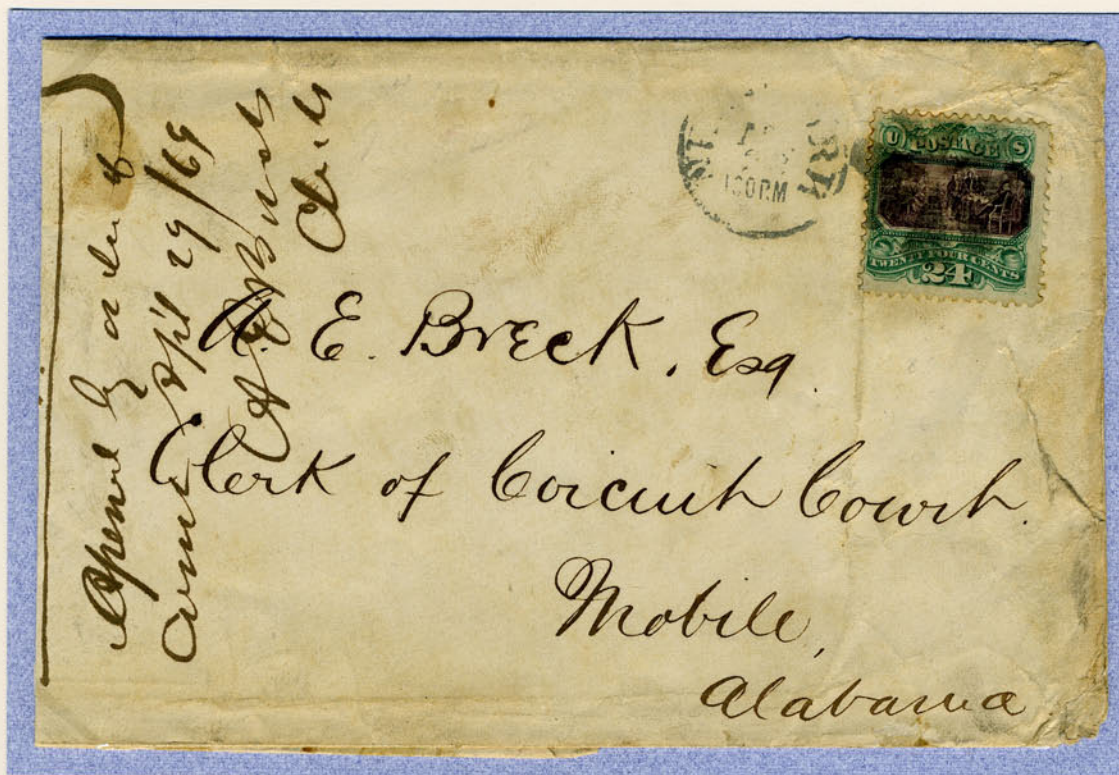 Opened by order of
Court Ap'l 29/69
Clerk
1 30 P.M
U POSTAGE S
TWENTY FOUR CENTS
24
E. Breck, Esq.
Clerk of Circuit Court.
Mobile,
Alabama